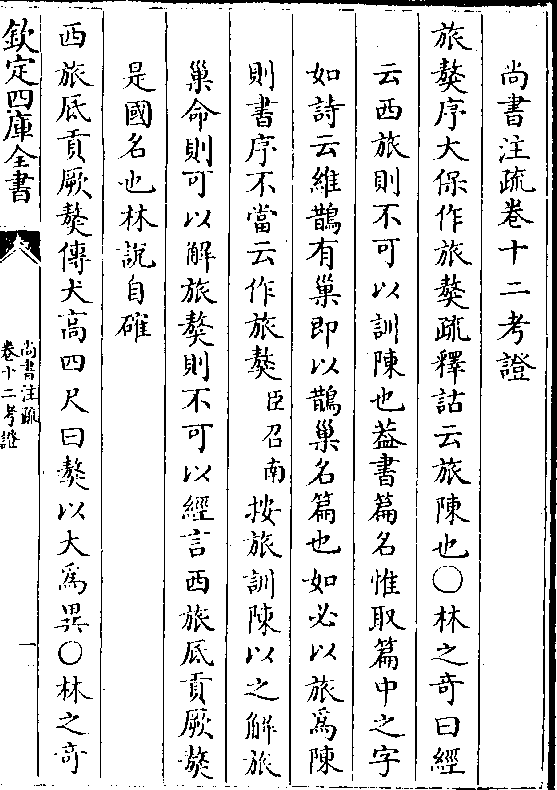 尚書注疏卷十二考證
旅獒序大保作旅獒疏釋詁云旅陳也○林之奇曰經
云西旅則不可以訓陳也葢書篇名惟取篇中之字
如詩云維鵲有巢即以鵲巢名篇也如必以旅爲陳
則書序不當云作旅獒臣召南按旅訓陳以之解旅
巢命則可以解旅獒則不可以經言西旅厎貢厥獒
是國名也林說自確
西旅厎貢厥獒傳犬高四尺曰獒以大爲異○林之奇
欽定四庫全書
尚書注疏
卷十二考證
一